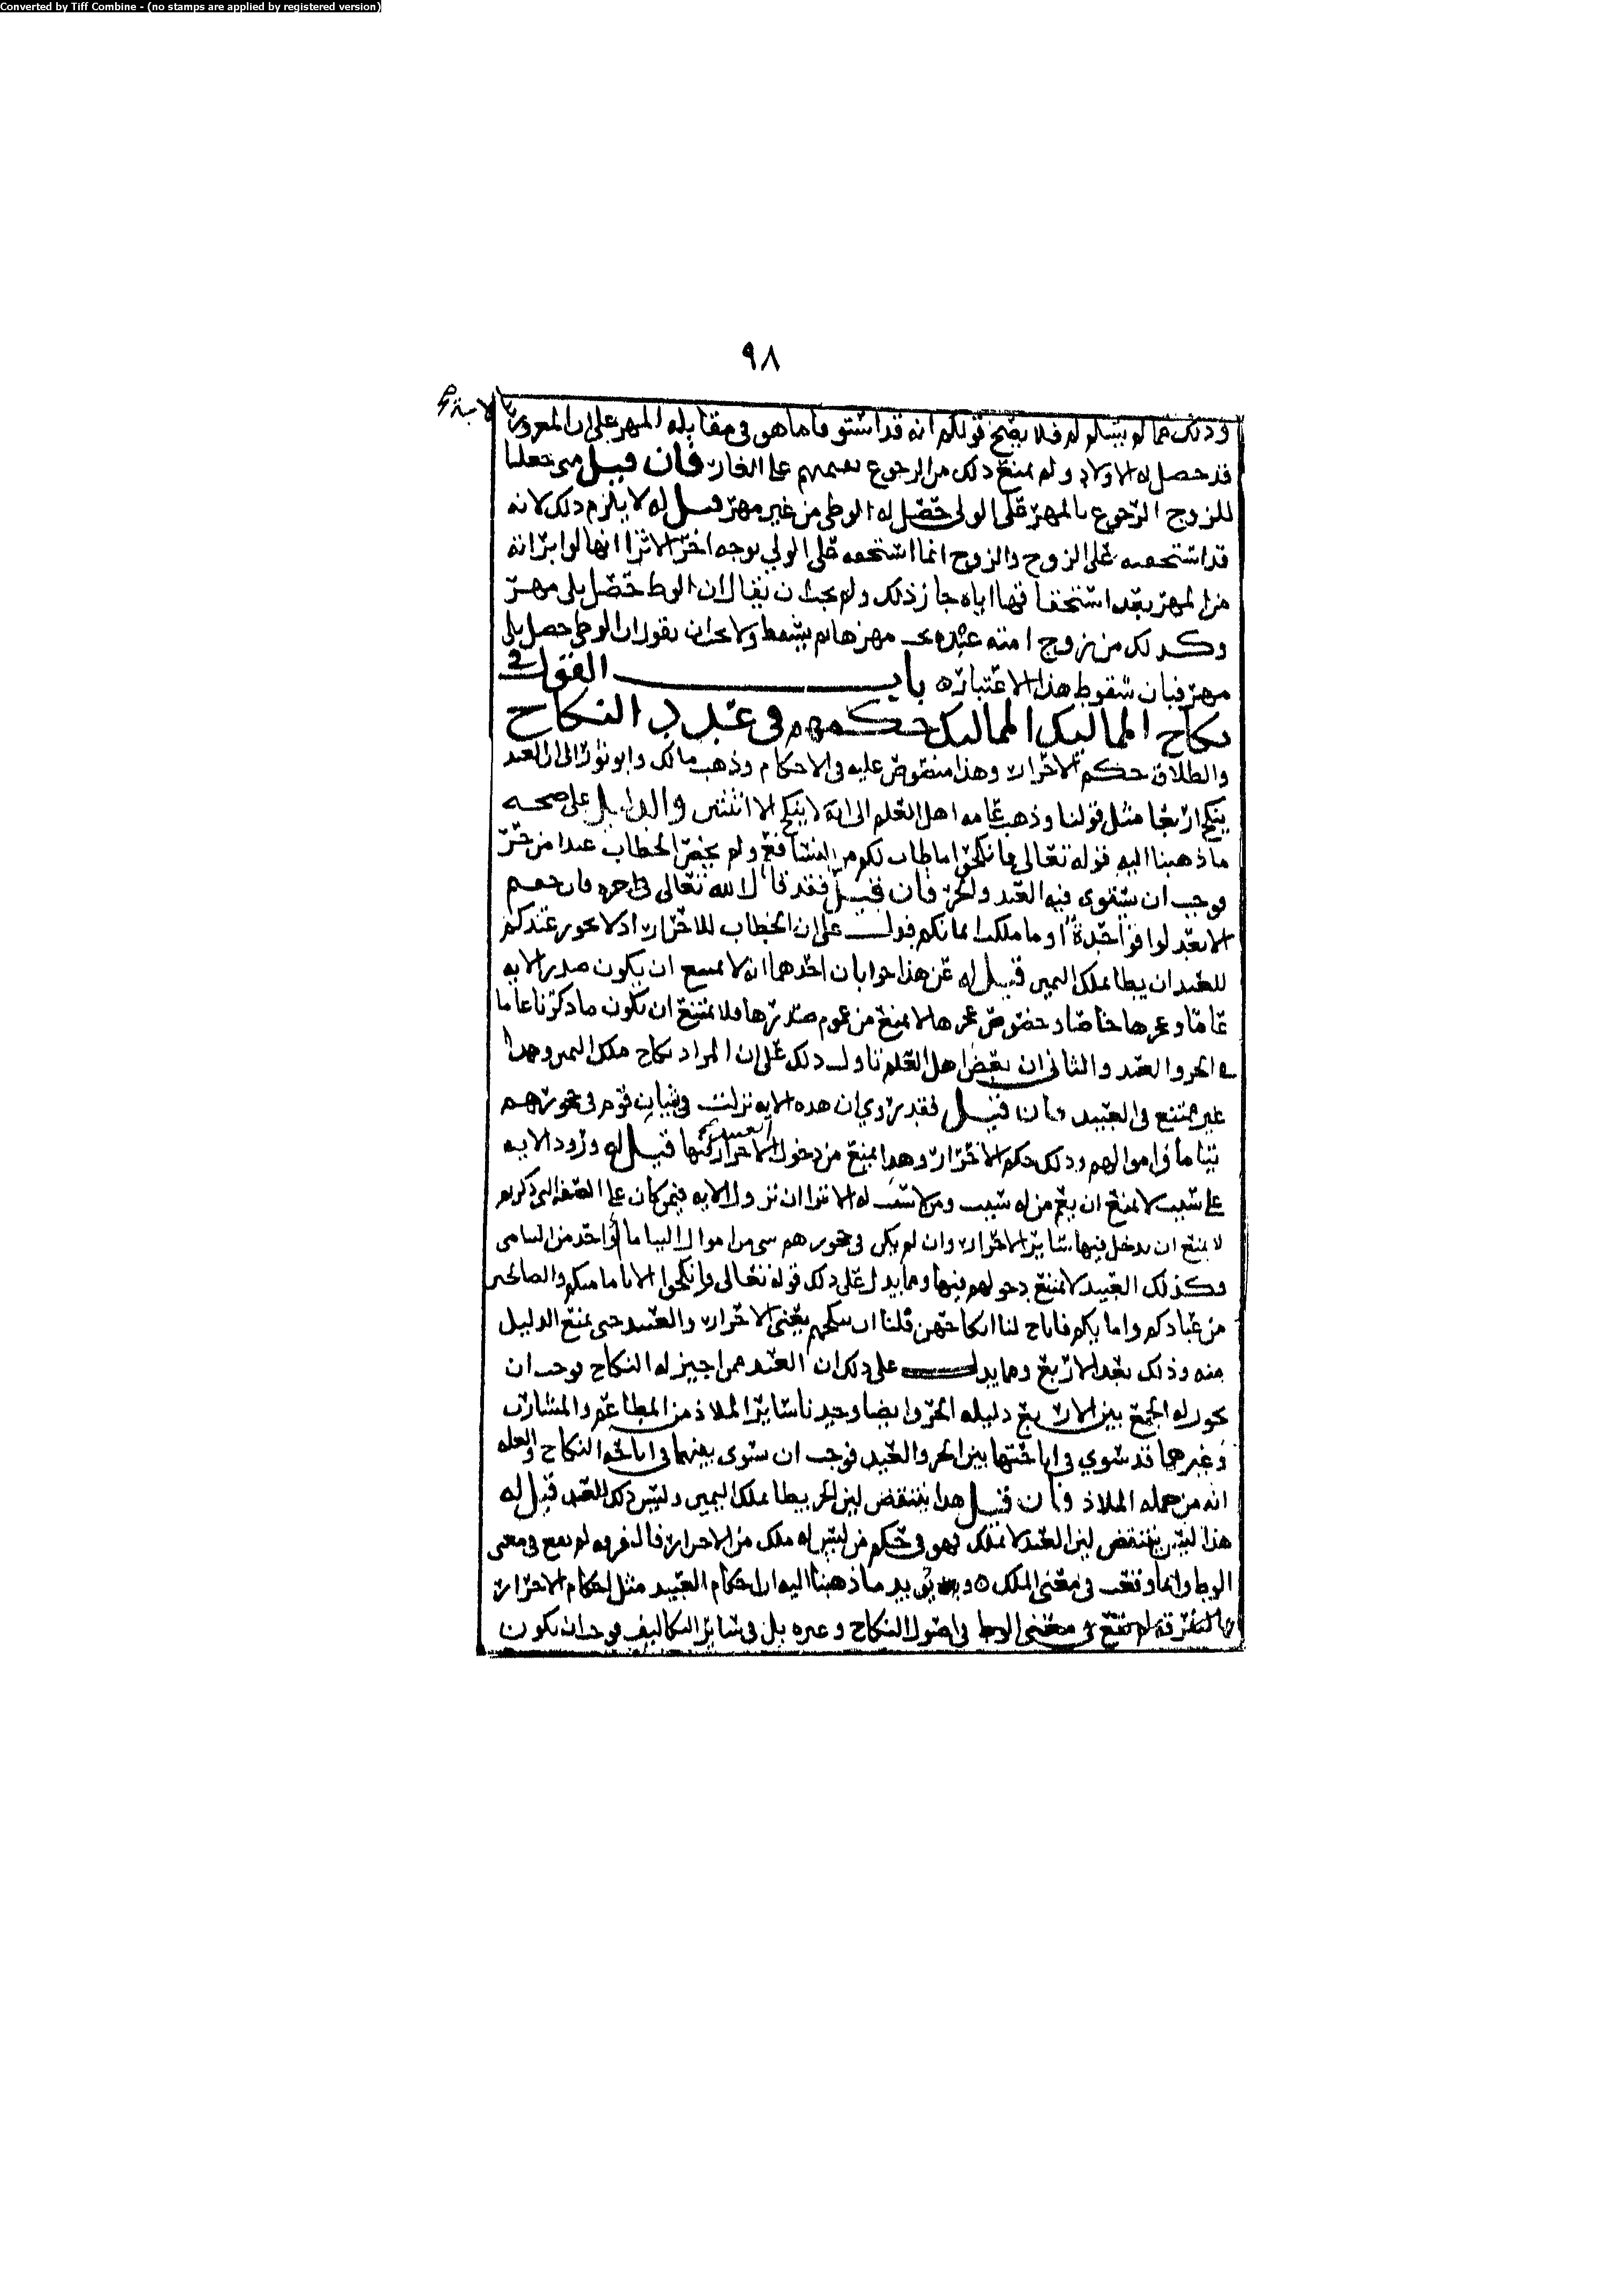 Converted by Tiff Combine - (no stamps are applied by registered version)
٩٨
وذلك مما لم يسلم له فلا يصح قولكم انه قد استوفا ما هو في مقابله المهر على ان المغرور
قد حصل له الاولاد ولم يمنع ذلك من الرجوع بقيمتهم على الغار فان قيل متى جعلنا
للزوج الرجوع بالمهر على الولي حصل له الوطي من غير مهر قيل له لا يلزم ذلك لانه
قد استحقته على الزوج والزوج انما استحقه على الولي بوجه اخر الا ترا انها لو ابرأته
من المهر بعد استحقاقها اياه جاز ذلك ولم يجب ان يقال ان الوط حصل بلى مهر
وكذلك من زوج امته عبده مهرها لم يسقط ولا يجب ان نقول ان الوطي حصل بلى
مهر فبان سقوط هذا الاعتبار ه باب القول في
نكاح المماليك المماليك حكمهم في عدد النكاح
والطلاق حكم الاحرار وهذا منصوص عليه في الاحكام وذهب مالك وابو ثور الى ان العبد
ينكح اربعا مثل قولنا وذهب عامه اهل العلم الى انه لا ينكح الا اثنتين والدليل على صحه
ما ذهبنا اليه قوله تعالى فانكحوا ما طاب لكم من النسا ولم يخص الخطاب عبدا من حر
فوجب ان يستوى فيه العبد والحر فان قيل فقد قال الله تعالى في اخره فان خفتم
الا تعدلوا فواحدة او ما ملكت ايمانكم فدل على ان الخطاب للاحرار اذ لا يجوز عندكم
للعبد ان يطا بملك اليمين قيل له عن هذا جوابان احدهما انه لا يمتنع ان يكون صدر الايه
عاما وعجزها خاصا وخصوص عجزها لا يمنع من عموم صدرها فلا يمتنع ان يكون ما ذكرنا عاما
في الحر والعبد والثاني ان بعض اهل العلم تاول ذلك على ان المراد نكاح ملك اليمين وهذا
غير ممتنع في العبيد فان قيل فقد روي ان هذه الايه نزلت في شان قوم في حجورهم
يتاما واموالهم وذلك حكم الاحرار وهذا يمنع من دخول العبيد فيها قيل له ورود الايه
على سبب لا يمنع ان يعم من له سبب ومن لا سبب له الا ترا ان نزول الايه فيمن كان على الصفه التي ذكرتم
لا يمنع ان يدخل فيها سائر الاحرار وان لم يكن في حجورهم شي من اموال اليتاما او احد من اليتامى
وكذلك العبيد لا يمتنع دخولهم فيها ومما يدل على ذلك قوله تعالى وانكحوا الاياما منكم والصالحين
من عبادكم وامايكم فاباح لنا انكاحهن قلنا ان ننكحهم يعني الاحرار والعبيد حتى يمنع الدليل
منه وذلك بعد الاربع ومما يدل على ذلك ان العبد ممن اجيز له النكاح فوجب ان
يجوز له الجمع بين الاربع دليله الحر وايضا وجدنا سائر الملاذ من المطاعم والمشارب
وغيرهما قد سوي في اباحتها بين الحر والعبد فوجب ان يسوى بينهما في اباحه النكاح والعله
انه من جمله الملاذ فان قيل هذا ينتقض لان الحر يطا بملك اليمين وليس ذلك للعبد قيل له
هذا ليس ينتقض لان العبد لا يملك فهو في حكم من ليس له ملك من الاحرار فالتفرقه لم تقع في معنى
الوط وانما وقعت في معنى الملك ه ويويد ما ذهبنا اليه ان احكام العبيد مثل احكام الاحرار
فالتفرقه لم تقع في معنى الوط في اصول النكاح وغيره بل في سائر التكاليف فوجب ان يكون